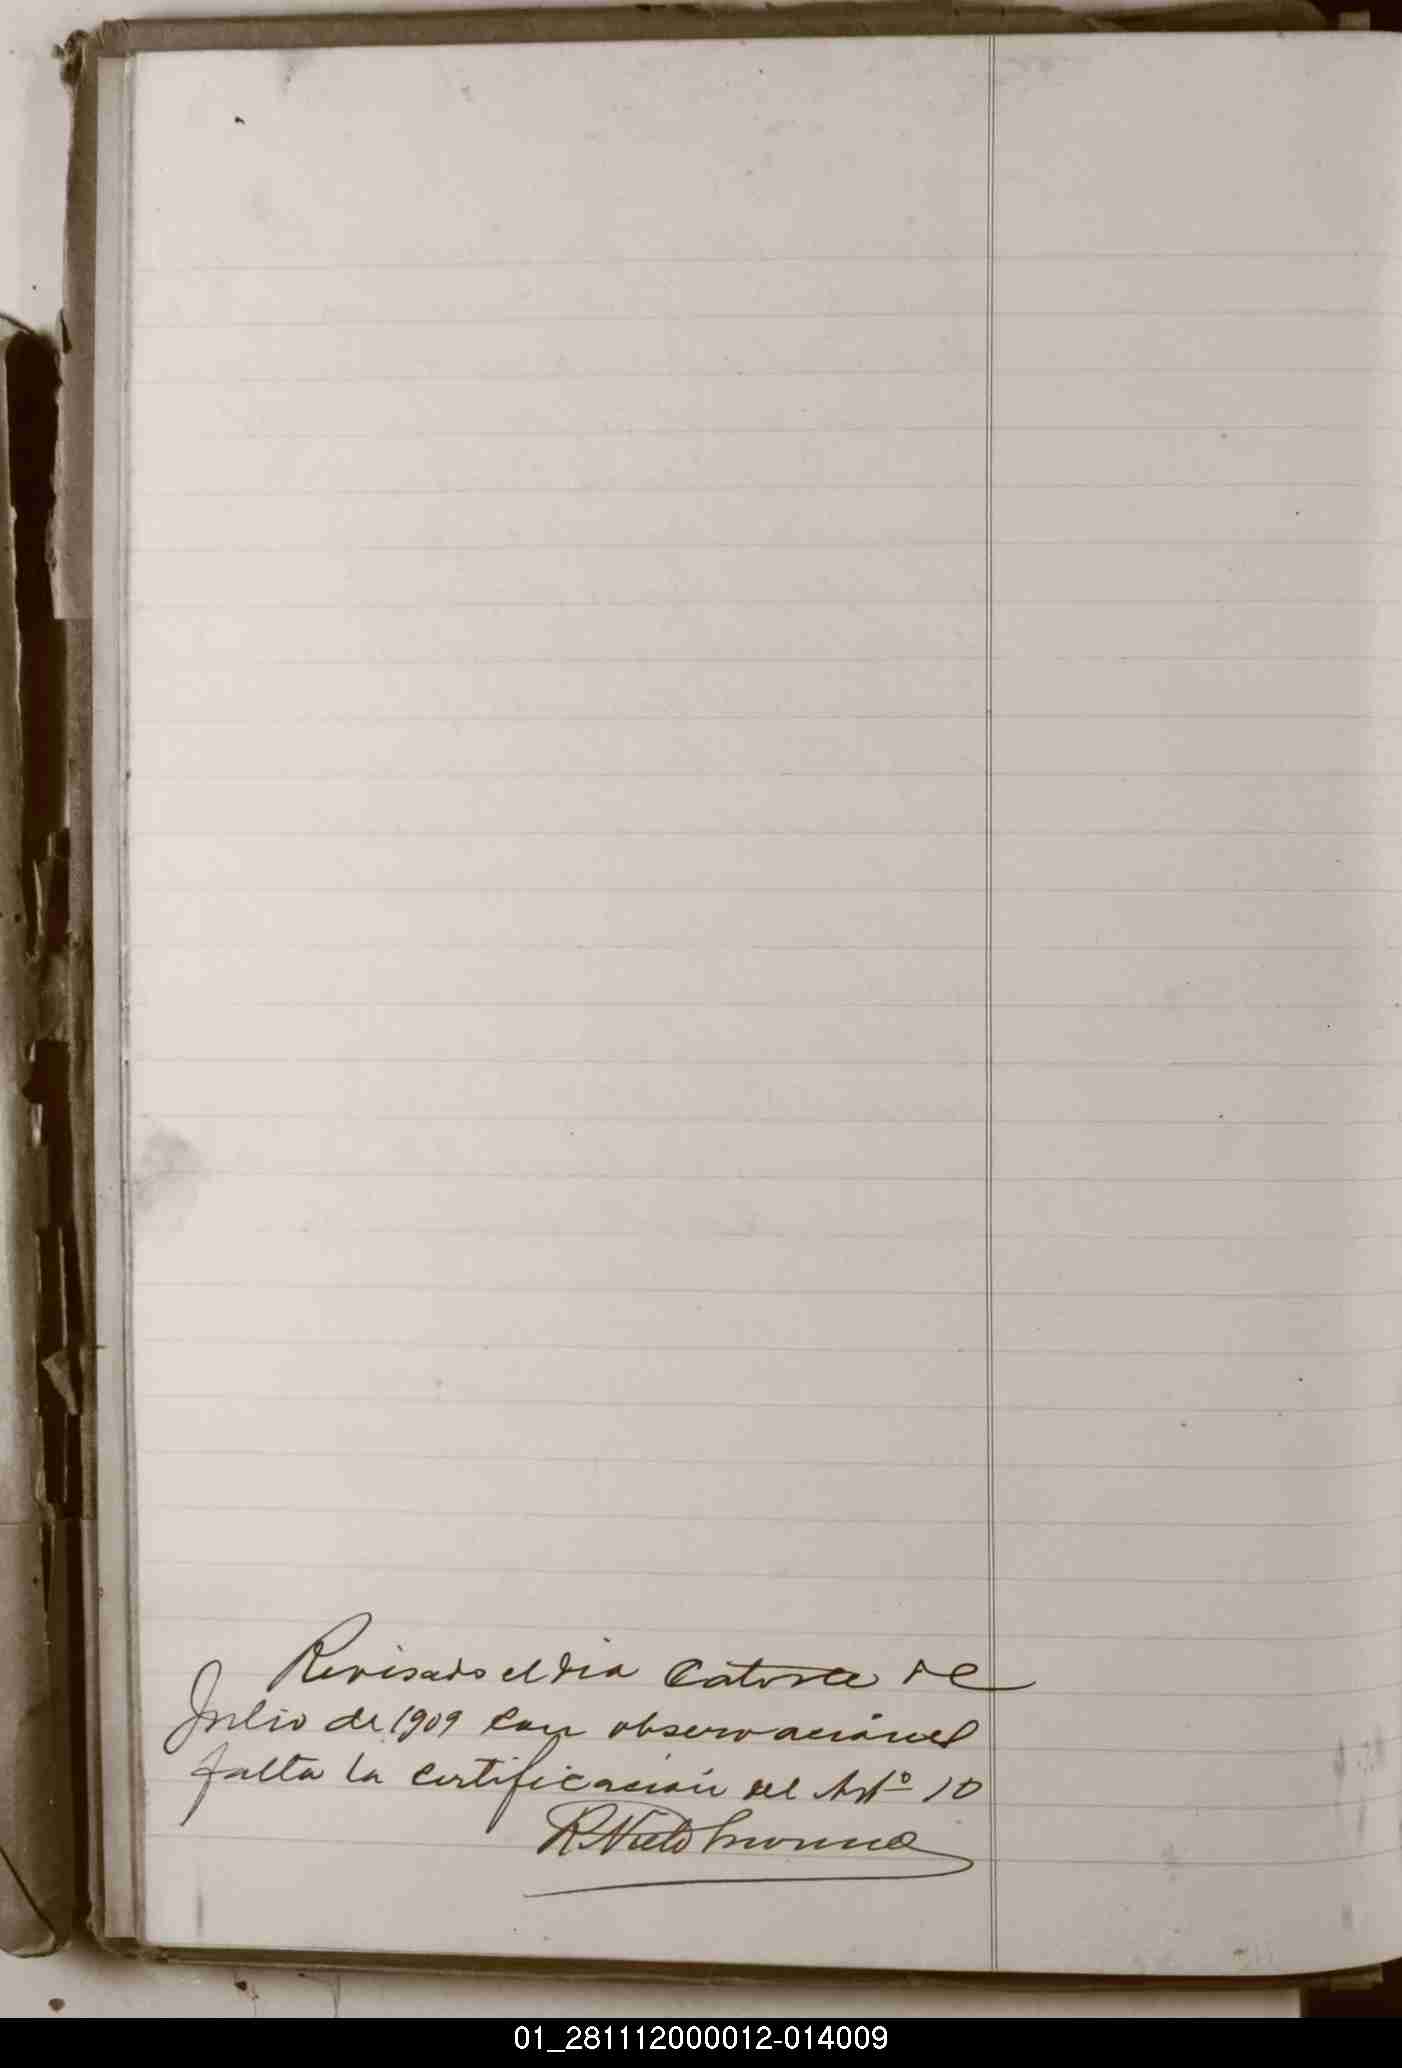 Revisado el dia Catorce de
Julio de 1909 con observaciones
falta la certificación del Art.º 10
R. Nieto
01_281112000012-014009